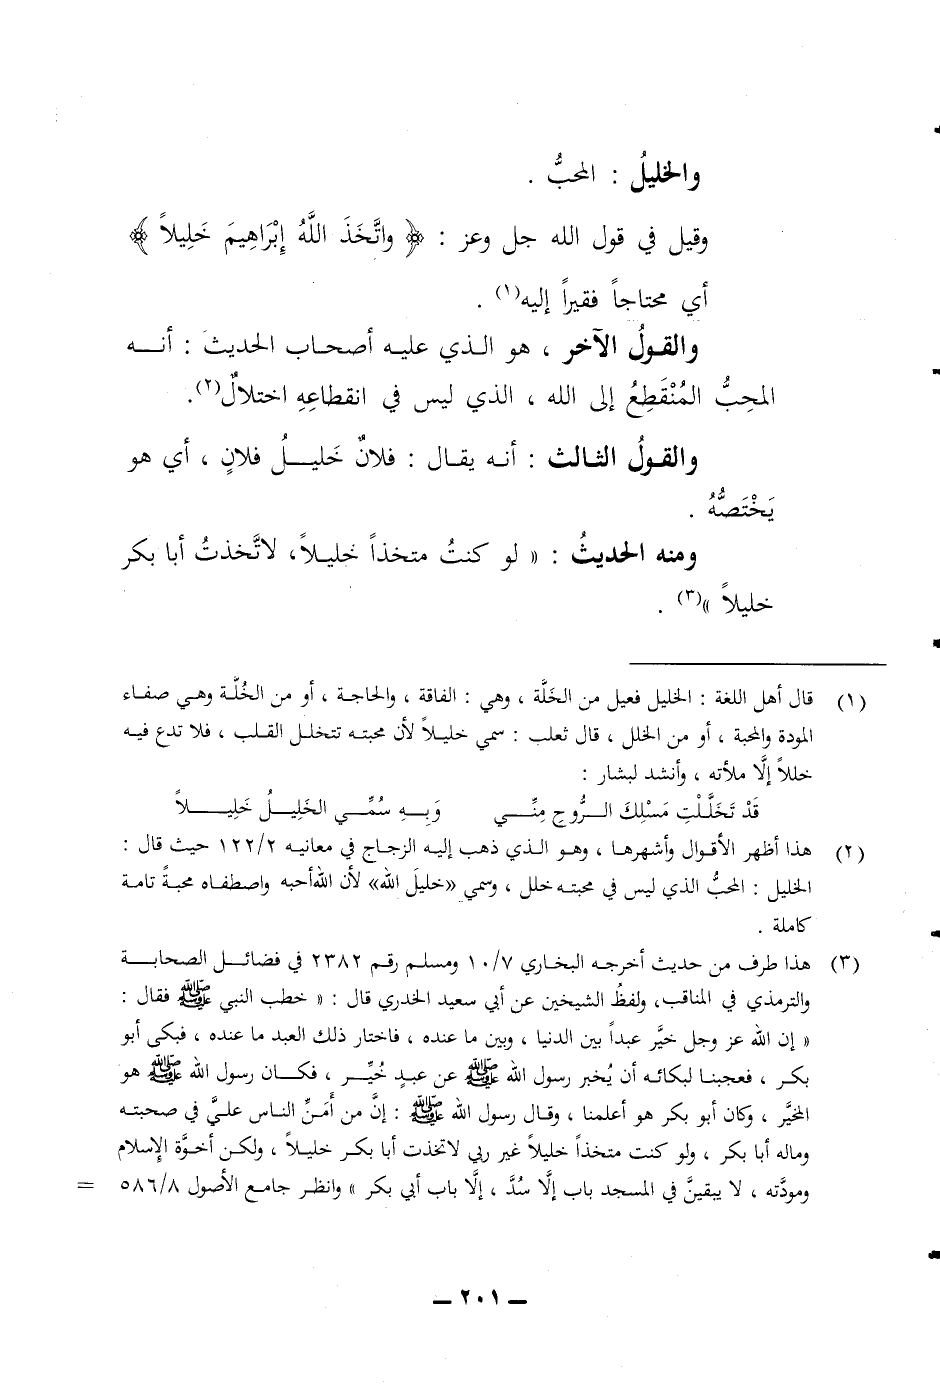 والخليلُ : المحبُّ .
وقيل في قول الله جل وعز : ﴿ واتَّخَذَ اللَّهُ إِبْرَاهِيمَ خَلِيلاً ﴾
أي محتاجاً فقيراً إليه(١) .
والقولُ الآخر ، هو الذي عليه أصحاب الحديث : أنه
المحِبُّ المُنْقَطِعُ إلى الله ، الذي ليس في انقطاعِهِ اختلالٌ(٢).
والقولُ الثالث : أنه يقال : فلانٌ خَليلُ فلانٍ ، أي هو
يَخْتَصُّهُ .
ومنه الحديثُ : « لو كنتُ متخذاً خليلاً، لاتَّخذتُ أبا بكر
خليلاً »(٣) .
(١) قال أهل اللغة : الخليل فعيل من الخَلَّة ، وهي : الفاقة ، والحاجة ، أو من الخُلَّة وهي صفاء
المودة والمحبة ، أو من الخلل ، قال ثعلب : سمي خليلاً لأن محبته تتخلل القلب ، فلا تدع فيه
خللاً إلَّا ملأته ، وأنشد لبشار :
قَدْ تَخَلَّلْتِ مَسْلِكَ الرُّوحِ مِنِّي وَبِهِ سُمِّي الخَلِيلُ خَلِيلاً
(٢) هذا أظهر الأقوال وأشهرها ، وهو الذي ذهب إليه الزجاج في معانيه ١٢٢/٢ حيث قال :
الخليل : المحبُّ الذي ليس في محبته خلل ، وسمي «خليلَ الله» لأن الله أحبه واصطفاه محبةً تامة
كاملة .
(٣) هذا طرف من حديث أخرجه البخاري ١٠/٧ ومسلم رقم ٢٣٨٢ في فضائل الصحابة
والترمذي في المناقب، ولفظُ الشيخين عن أبي سعيد الخدري قال : « خطب النبي ﷺ فقال :
« إن الله عز وجل خيَّر عبداً بين الدنيا ، وبين ما عنده ، فاختار ذلك العبد ما عنده ، فبكى أبو
بكر ، فعجبنا لبكائه أن يُخبر رسول الله ﷺ عن عبدٍ خُيِّر ، فكان رسول الله ﷺ هو
المخيَّر ، وكان أبو بكر هو أعلمنا ، وقال رسول الله ﷺ : إنَّ من أَمَنِّ الناس عليَّ في صحبته
وماله أبا بكر ، ولو كنت متخذاً خليلاً غير ربي لاتخذت أبا بكر خليلاً ، ولكن أخوَّة الإسلام
ومودَّته ، لا يبقينَّ في المسجد باب إلَّا سُدَّ ، إلَّا باب أبي بكر » وانظر جامع الأصول ٥٨٦/٨ =
ــ ٢٠١ ــ